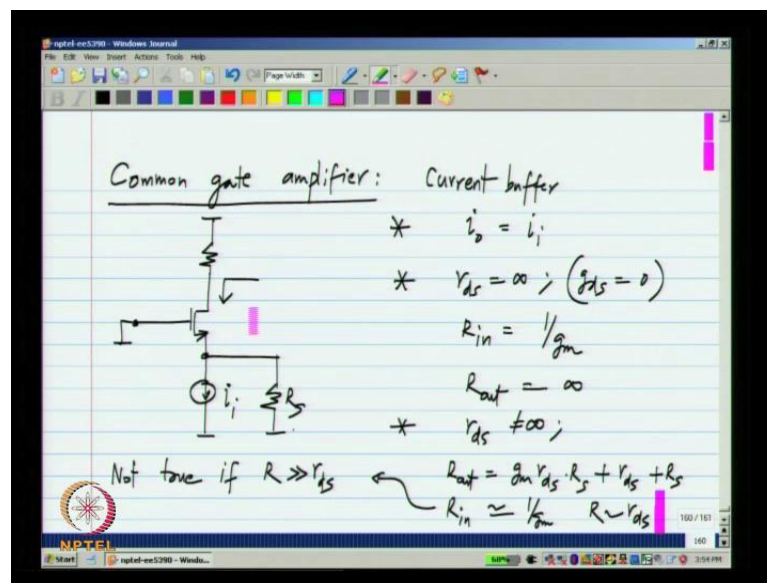 nptel-ee5390 - Windows Journal
File Edit View Insert Actions Tools Help
Page Width
B I
Common gate amplifier: Current buffer
* i_o = i_i
* r_ds = ∞ ; (g_ds = 0)
R_in = 1/g_m
R_out = ∞
i_i R_S
* r_ds ≠ ∞ ;
Not true if R ≫ r_ds
R_out = g_m r_ds · R_S + r_ds + R_S
R_in ≃ 1/g_m R ~ r_ds
160 / 161
160
NPTEL
Start nptel-ee5390 - Windo...
3:54 PM